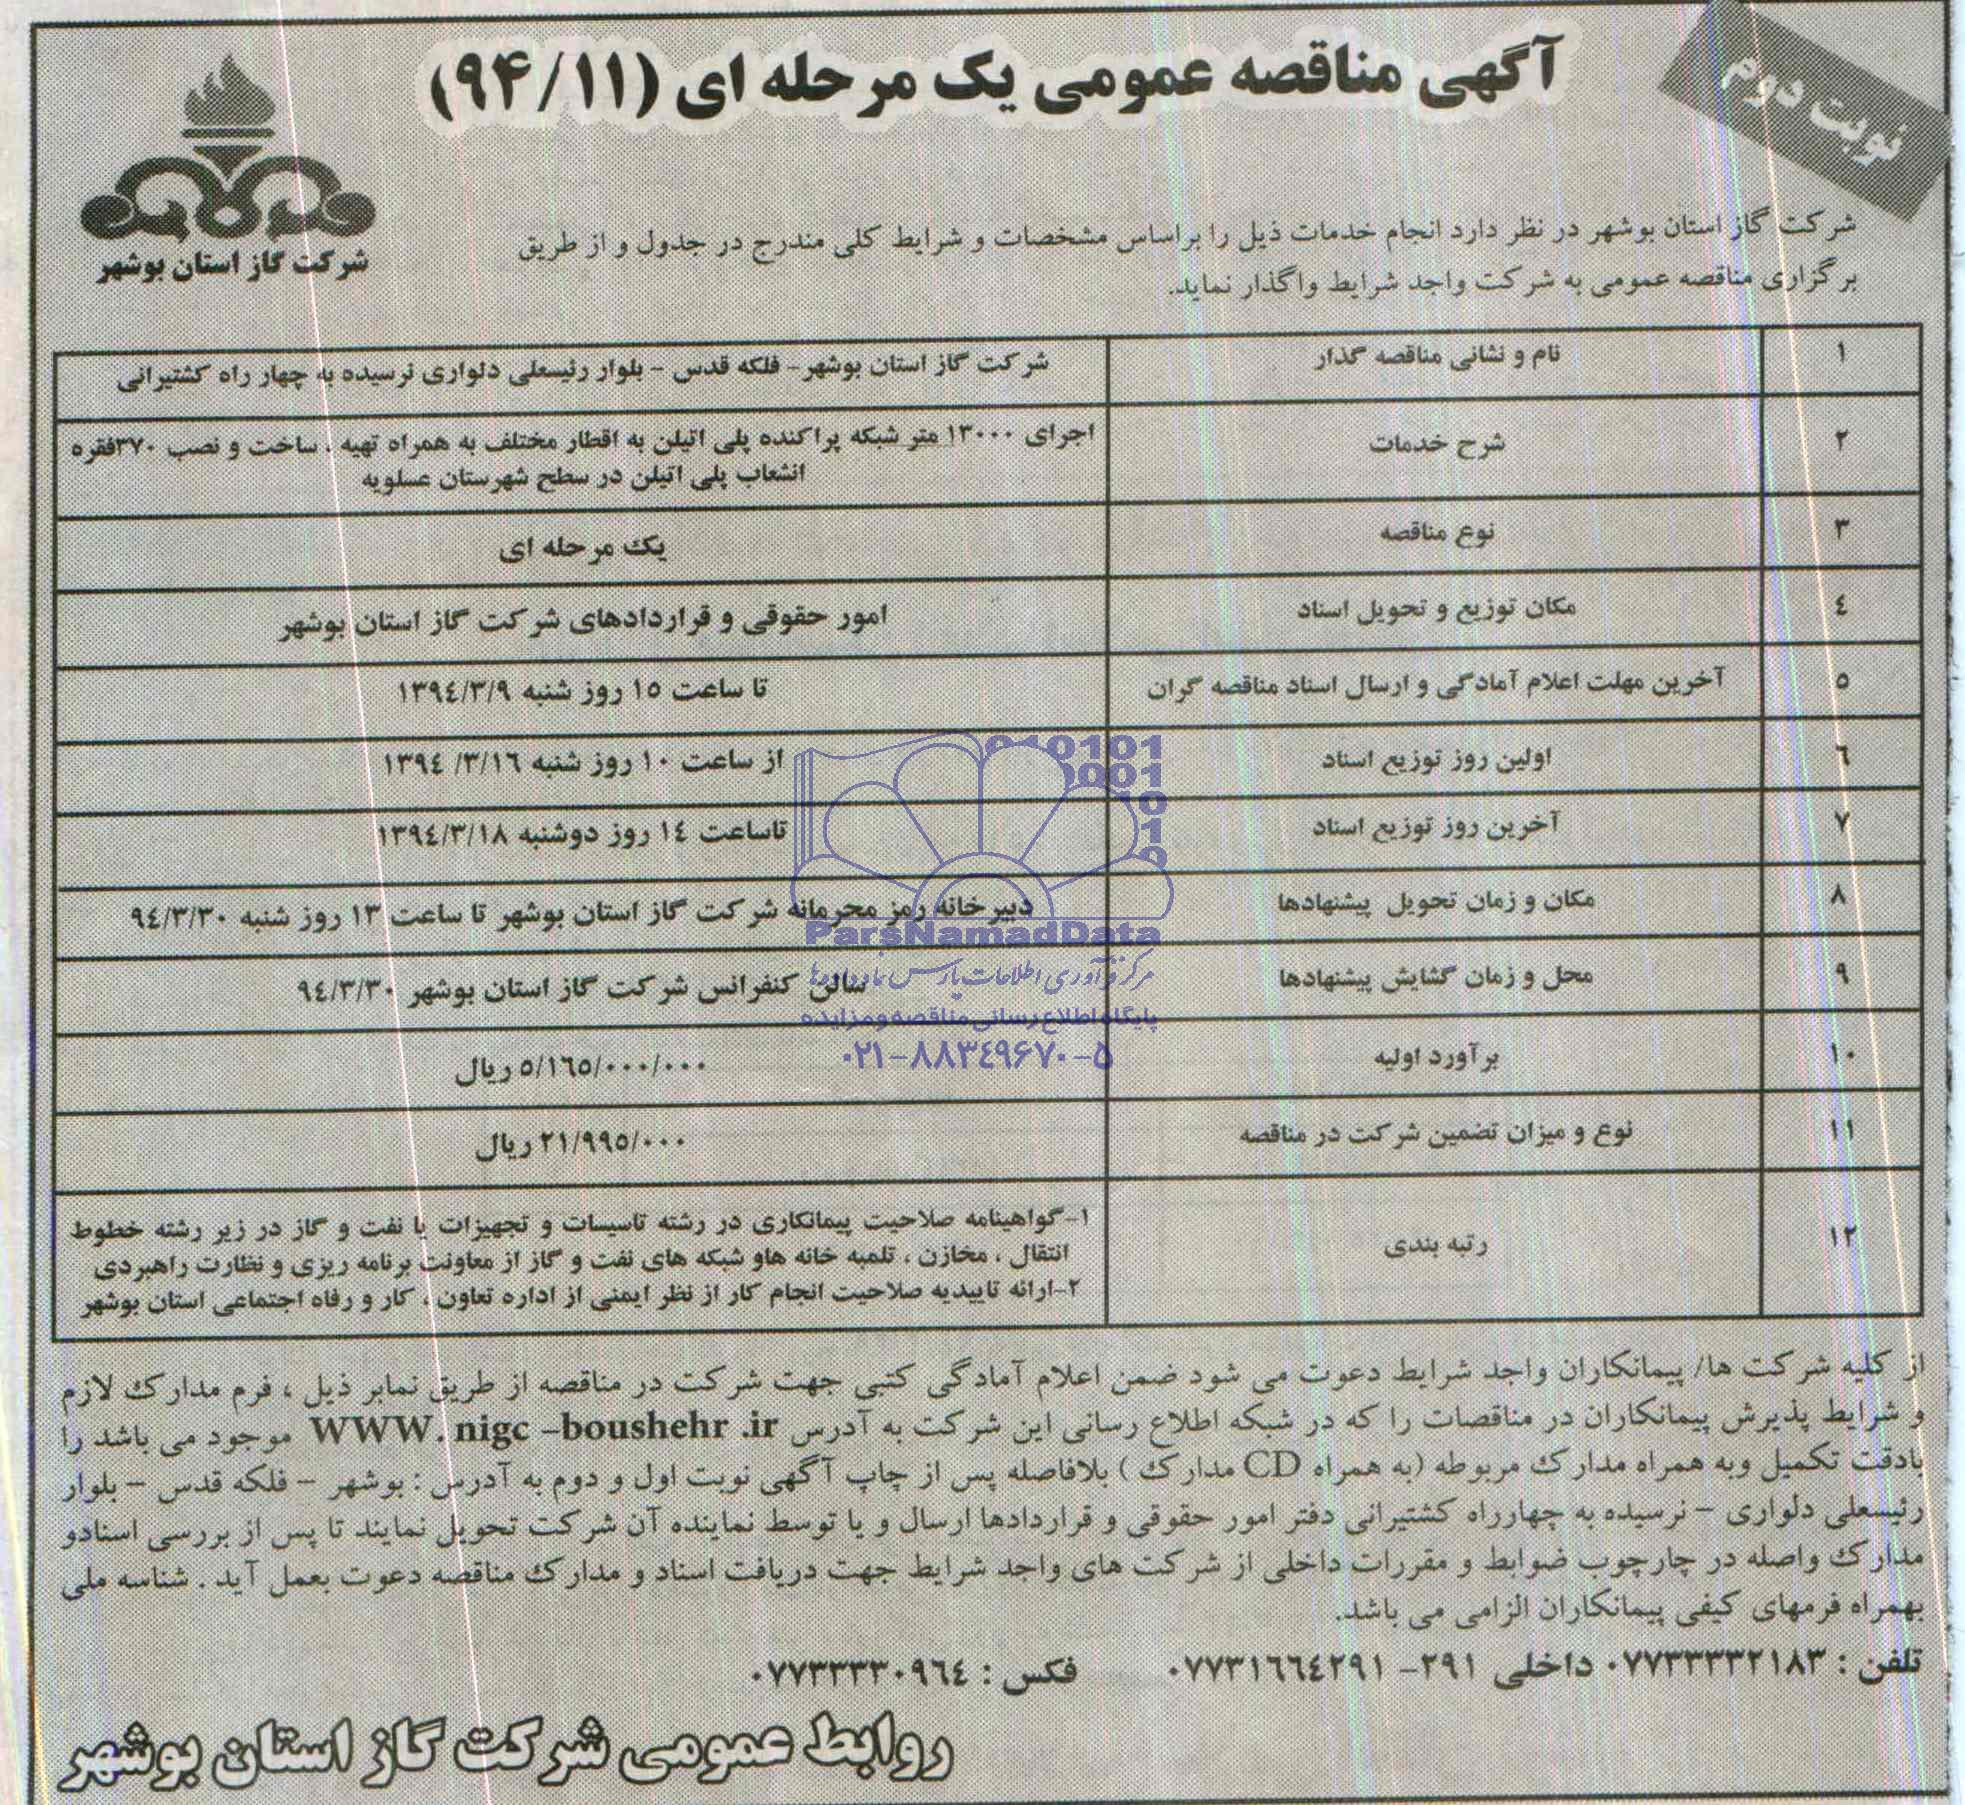 نوبت دوم
آگهی مناقصه عمومی یک مرحله ای (۹۴/۱۱)
شرکت گاز استان بوشهر
شرکت گاز استان بوشهر در نظر دارد انجام خدمات ذیل را براساس مشخصات و شرایط کلی مندرج در جدول و از طریق
برگزاری مناقصه عمومی به شرکت واجد شرایط واگذار نماید.
۱ نام و نشانی مناقصه گذار شرکت گاز استان بوشهر- فلکه قدس - بلوار رئیسعلی دلواری نرسیده به چهار راه کشتیرانی
۲ شرح خدمات اجرای ۱۳۰۰۰ متر شبکه پراکنده پلی اتیلن به اقطار مختلف به همراه تهیه ، ساخت و نصب ۳۷۰فقره
انشعاب پلی اتیلن در سطح شهرستان عسلویه
۳ نوع مناقصه یک مرحله ای
٤ مکان توزیع و تحویل اسناد امور حقوقی و قراردادهای شرکت گاز استان بوشهر
٥ آخرین مهلت اعلام آمادگی و ارسال اسناد مناقصه گران تا ساعت ۱٥ روز شنبه ۱۳۹٤/۳/۹
٦ اولین روز توزیع اسناد از ساعت ۱۰ روز شنبه ۱۳۹٤ /۳/۱٦
۷ آخرین روز توزیع اسناد تاساعت ۱٤ روز دوشنبه ۱۳۹٤/۳/۱۸
۸ مکان و زمان تحویل پیشنهادها دبیرخانه رمز محرمانه شرکت گاز استان بوشهر تا ساعت ۱۳ روز شنبه ۹٤/۳/۳۰
۹ محل و زمان گشایش پیشنهادها سالن کنفرانس شرکت گاز استان بوشهر ۹٤/۳/۳۰
۱۰ برآورد اولیه ٥/۱٦٥/۰۰۰/۰۰۰ ریال
۱۱ نوع و میزان تضمین شرکت در مناقصه ۲۱/۹۹٥/۰۰۰ ریال
۱۲ رتبه بندی ۱-گواهینامه صلاحیت پیمانکاری در رشته تاسیسات و تجهیزات یا نفت و گاز در زیر رشته خطوط
انتقال ، مخازن ، تلمبه خانه هاو شبکه های نفت و گاز از معاونت برنامه ریزی و نظارت راهبردی
۲-ارائه تاییدیه صلاحیت انجام کار از نظر ایمنی از اداره تعاون ، کار و رفاه اجتماعی استان بوشهر
ParsNamadData
مرکز فرآوری اطلاعات پارس نماد داده‌ها
پایگاه اطلاع رسانی مناقصه و مزایده
۰۲۱-۸۸۳٤۹۶۷۰-۵
از کلیه شرکت ها/ پیمانکاران واجد شرایط دعوت می شود ضمن اعلام آمادگی کتبی جهت شرکت در مناقصه از طریق نمابر ذیل ، فرم مدارک لازم
و شرایط پذیرش پیمانکاران در مناقصات را که در شبکه اطلاع رسانی این شرکت به آدرس WWW. nigc -boushehr .ir موجود می باشد را
بادقت تکمیل وبه همراه مدارک مربوطه (به همراه CD مدارک ) بلافاصله پس از چاپ آگهی نوبت اول و دوم به آدرس : بوشهر - فلکه قدس - بلوار
رئیسعلی دلواری - نرسیده به چهارراه کشتیرانی دفتر امور حقوقی و قراردادها ارسال و یا توسط نماینده آن شرکت تحویل نمایند تا پس از بررسی اسنادو
مدارک واصله در چارچوب ضوابط و مقررات داخلی از شرکت های واجد شرایط جهت دریافت اسناد و مدارک مناقصه دعوت بعمل آید . شناسه ملی
بهمراه فرمهای کیفی پیمانکاران الزامی می باشد.
تلفن : ۰۷۷۳۳۳۳۲۱۸۳ داخلی ۲۹۱- ۰۷۷۳۱٦٦٤۲۹۱ فکس : ۰۷۷۳۳۳۳۰۹٦٤
روابط عمومی شرکت گاز استان بوشهر